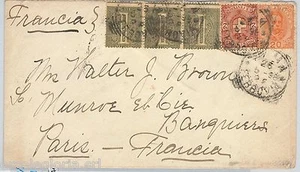 Francia)
Mrs Walter J. Brown
c. Munroe et Cie
Banquiers
Paris. — Francia
20